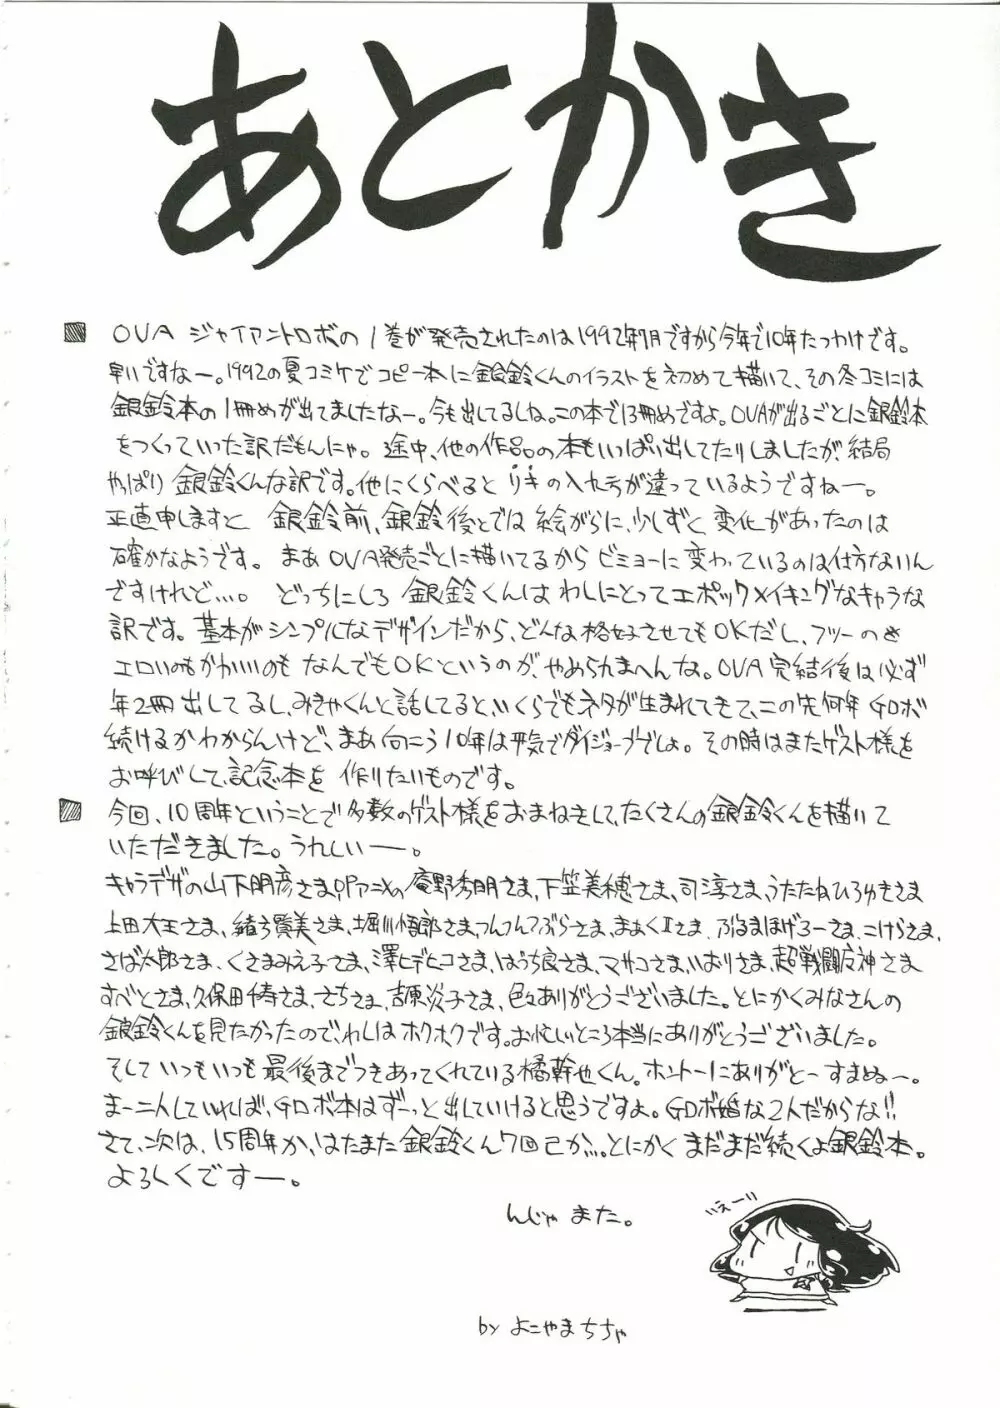 あとかき
OVA ジャイアントロボの1巻が発売されたのは1992年7月ですから今年で10年たつわけです。
早いですなー。1992の夏コミケでコピー本に銀鈴くんのイラストを初めて描いて、その冬コミには
銀鈴本の1冊めが出てましたなー。今も出してるしね。この本で13冊めですよ。OVAが出るごとに銀鈴本
をつくっていった訳だもんにゃ。途中、他の作品の本もいっぱい出してたりしましたが、結局
やっぱり銀鈴くんな訳です。他にくらべるとリキの入れ方が違っているようですねー。
正直申しますと 銀鈴前、銀鈴後とでは絵がらに、少しずく変化があったのは
確かなようです。まあOVA発売ごとに描いてるからビミョーに変わっているのは仕方ないん
ですけれど…。どっちにしろ 銀鈴くんはわしにとってエポックメイキングなキャラな
訳です。基本がシンプルなデザインだから、どんな格好させてもOKだし、フツーのも
エロいのもかわいいのもなんでもOKというのが、やめられまへんな。OVA完結後は必ず
年2冊出してるし、みきゃくんと話してると、いくらでもネタが生まれてきて、この先何年GロボI
続けるかわからんけど、まあ向こう10年は平気でダイジョーブでしょ。その時はまたゲスト様を
お呼びして、記念本を作りたいものです。
今回、10周年ということで多数のゲスト様をおまねきして、たくさんの銀鈴くんを描いて
いただきました。うれしいー。
キャラデザの山下明彦さま、OPアニメの庵野秀明さま、下笠美穂さま、司淳さま、うたたねひろゆきさま
上田大王さま、緒方賢美さま、堀川悟郎さま、つんつんつぶらさま、まぁくIIさま、ぶるまほげろーさま、こけらさま、
さば太郎さま、くさまみえ子さま、澤ヒデヒコさま、はうち良さま、マサコさま、いおりさま、超戦闘民神さま
すべとさま、久保田倖さま、さちさま、吉原炎子さま、色々ありがとうございました。とにかくみなさんの
銀鈴くんを見たかったので、わしはホクホクです。お忙しいところ本当にありがとうございました。
そしていつもいつも最後までつきあってくれている橘幹也くん。ホントーにありがとーすまぬー。
まー二人していれば、Gロボ本はずーっと出していけると思うですよ。Gロボ婚な2人だからな!!
さて、次は、15周年か、はたまた銀鈴くん7回忌か…。とにかくまだまだ続くよ銀鈴本。
よろしくですー。
んじゃまた。
いえーい
by よこやまちちゃ